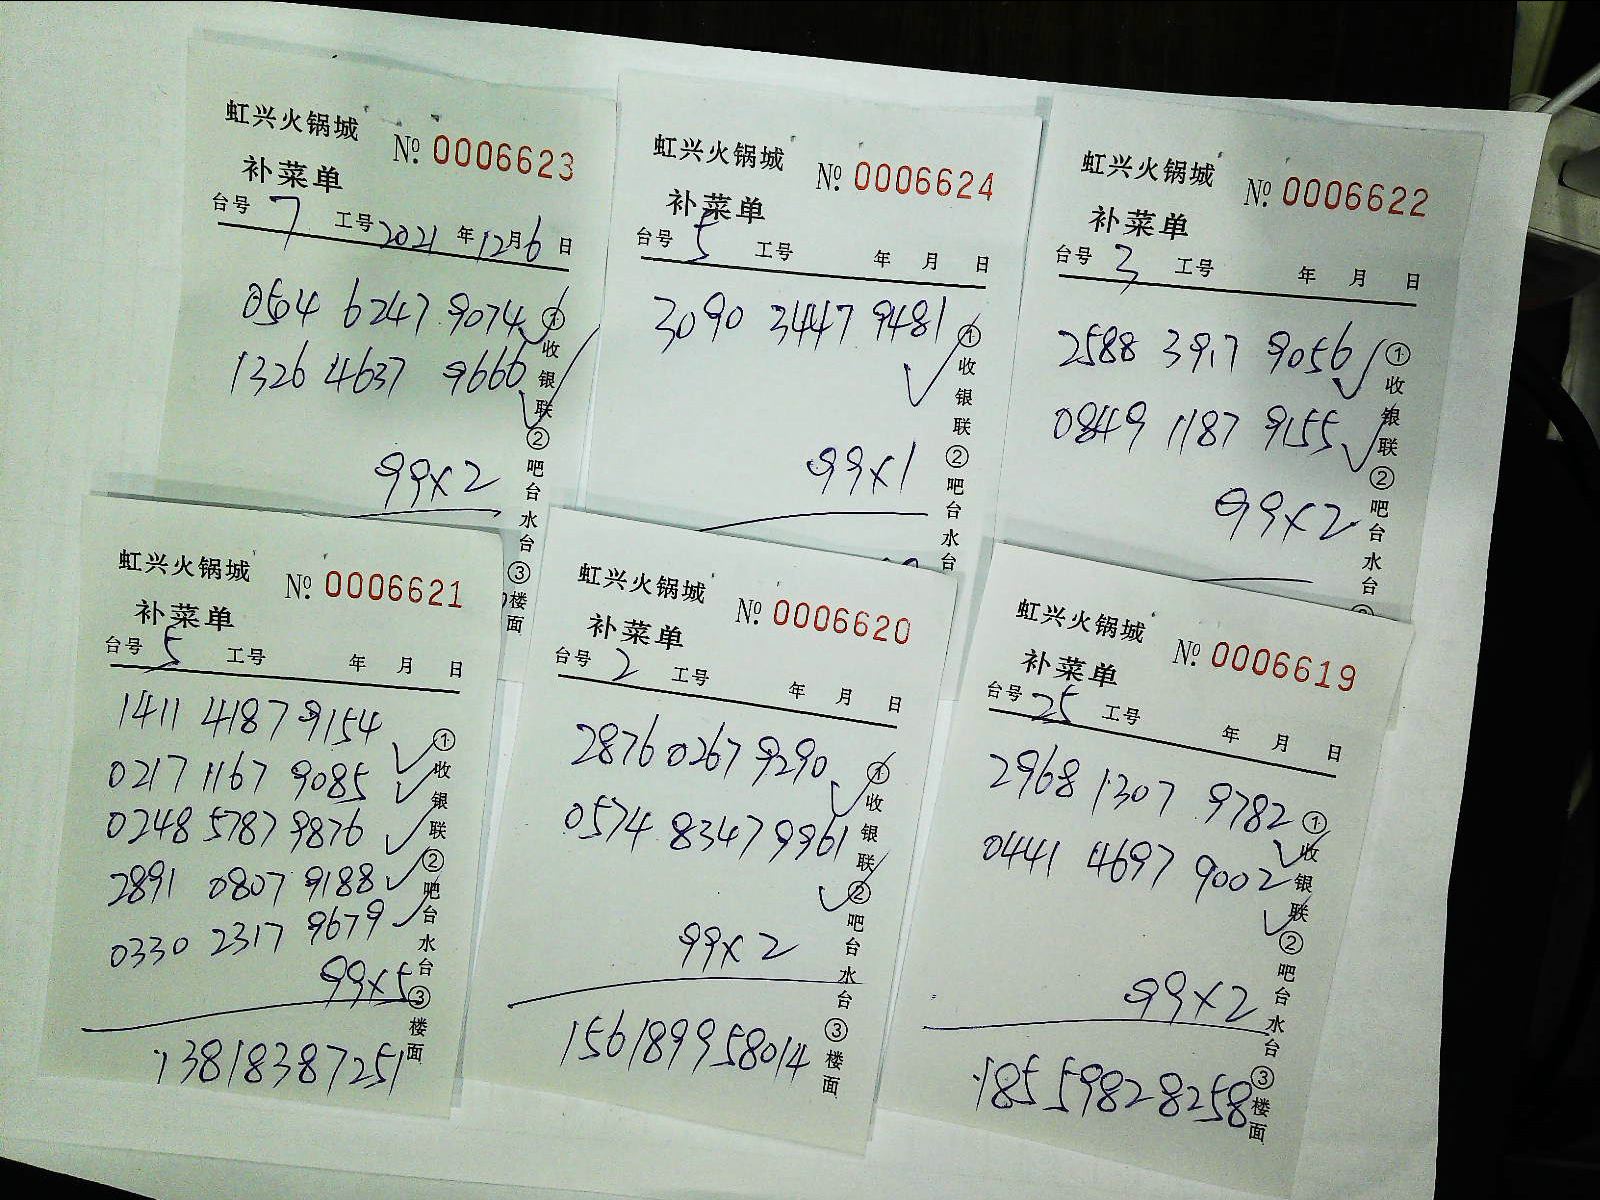 虹兴火锅城
№ 0006623
补菜单
台号 7 工号 2021 年 12 月 6 日
0504 6247 9074
1326 4637 9666
99×2
①收银联②吧台水台③楼面
虹兴火锅城
№ 0006624
补菜单
台号 5 工号 年 月 日
3090 3447 9481
99×1
①收银联②吧台水台
虹兴火锅城
№ 0006622
补菜单
台号 3 工号 年 月 日
2588 3917 9056
0849 1187 9155
99×2
①收银联②吧台水台
虹兴火锅城
№ 0006621
补菜单
台号 5 工号 年 月 日
1411 4187 9154
0217 1167 9085
0248 5787 9876
2891 0807 9188
0330 2317 9679
99×5
13818387251
①收银联②吧台水台③楼面
虹兴火锅城
№ 0006620
补菜单
台号 2 工号 年 月 日
2876 0267 9290
0574 8347 9961
99×2
156189958014
①收银联②吧台水台③楼面
虹兴火锅城
№ 0006619
补菜单
台号 25 工号 年 月 日
2968 1307 9782
0441 4697 9002
99×2
18559828258
①收银联②吧台水台③楼面